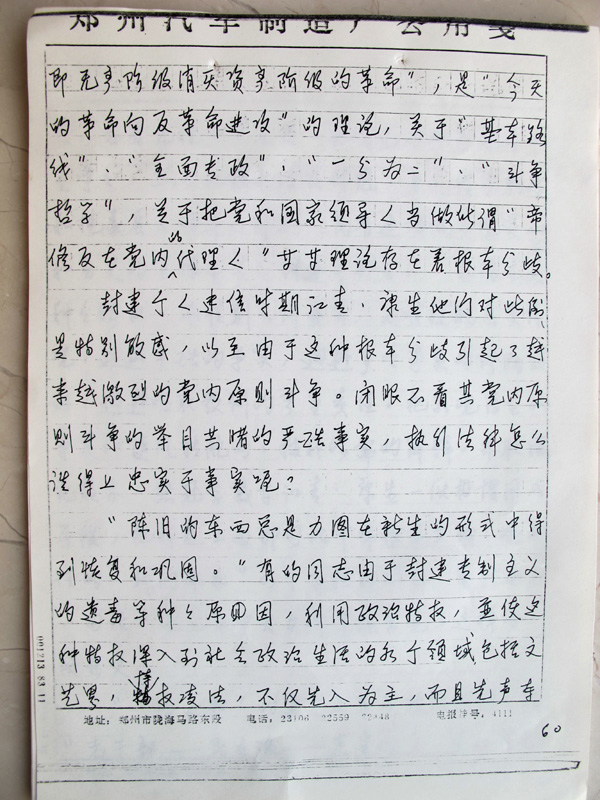 郑州汽车制造厂公用笺
即无产阶级消灭资产阶级的革命”，是“今天
的革命向反革命进攻”的理论，关于“基本路
线”、“全面专政”、“一分为二”、“斗争
哲学”，关于把党和国家领导人当做所谓“帝
修反在党内的代理人”等理论存在着根本分歧。
封建 迷信时期江青、康生他们对此
是特别敏感，以至由于这种根本分歧引起了越
来越激烈的党内原则斗争。闭眼不看其党内原
则斗争的举目共睹的严酷事实，执引法律怎么
谈得上忠实于事实呢？
“陈旧的东西总是力图在新生的形式中得
到恢复和巩固。”有的同志由于封建专制主义
的遗毒等种种原因，利用政治特权，并使这
种特权深入到社会政治生活的各个领域包括文
艺界，权凌法，不仅先入为主，而且先声夺
地址：郑州市陇海马路东段 电话：23106 22559 电报挂号：4111
60